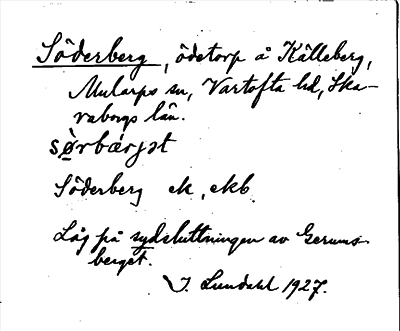 Söderberg, ödetorp å Källeberg,
Mularps sn, Vartofta hd, Ska-
raborgs län.
sø̀rbæ̀rjət
Söderberg ek, ekb
Låg på sydsluttningen av Gerums-
berget.
I. Lundahl 1927.